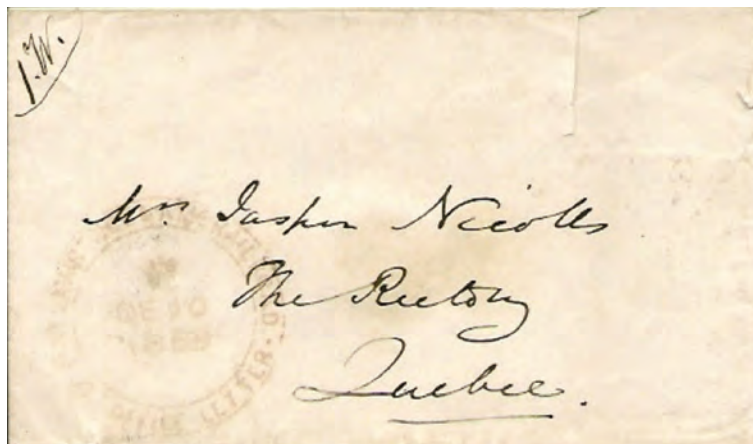 J.W.
Mrs Jasper Nicolls
The Rectory
Quebec.
DE 10
OFFICE LETTER